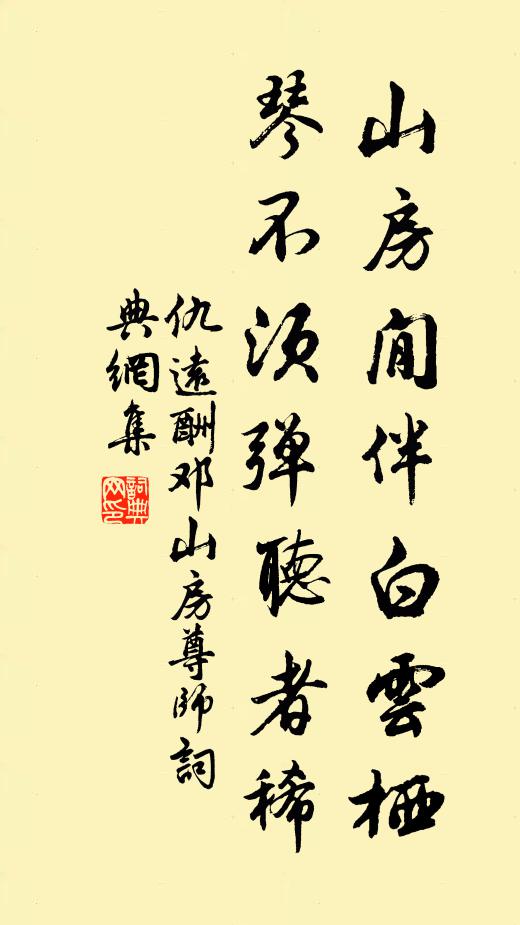 山房閒伴白雲栖
琴不須弹聽者稀
仇遠酬邓山房尊師詞
典網集
詞典網印